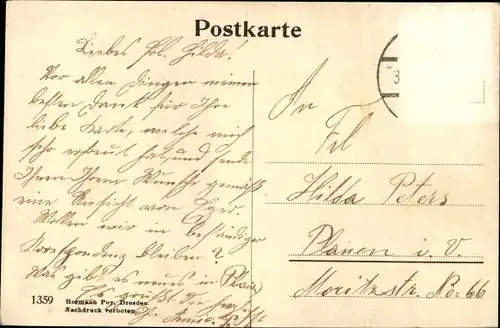 Postkarte
Liebes Frl. Hilda!
Vor allen Dingen meinen
besten Dank für Ihre
liebe Karte, welche mich
sehr erfreut hat, und sende
Ihnen Ihrem Wunsche gemäß
eine Ansicht von Eger.
Wollen wir in beständiger
Korespondenz bleiben?
Was gibt es neues in Plauen
Es grüßt Sie herzl.
Annie
1359
Hermann Poy, Dresden
Nachdruck verboten
An
Frl
Hilda Peters
Plauen i. V.
Moritzstr. No. 66